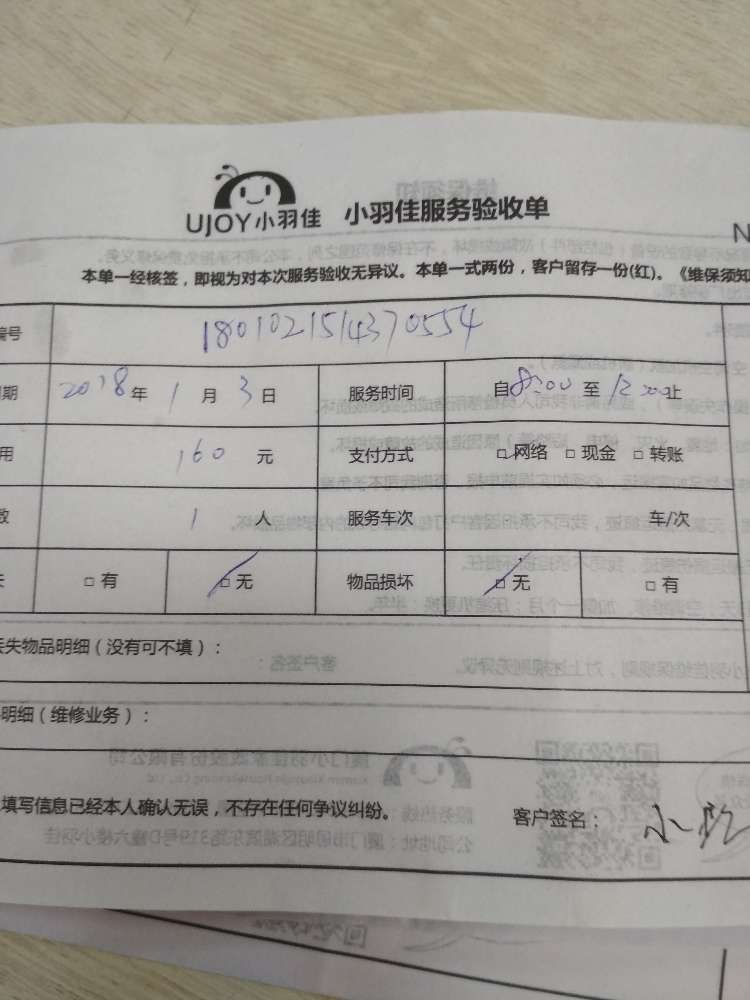 UJOY小羽佳 小羽佳服务验收单
N
本单一经核签，即视为对本次服务验收无异议。本单一式两份，客户留存一份(红)。《维保须知
编号 180102151437 0554
期 2018年 1 月 3 日 服务时间 自8:00 至 12:00止
用 160 元 支付方式 □网络 □现金 □转账
数 1 人 服务车次 车/次
失 □有 □无 物品损坏 □无 □有
丢失物品明细（没有可不填）：
明细（维修业务）：
填写信息已经本人确认无误，不存在任何争议纠纷。 客户签名： 小